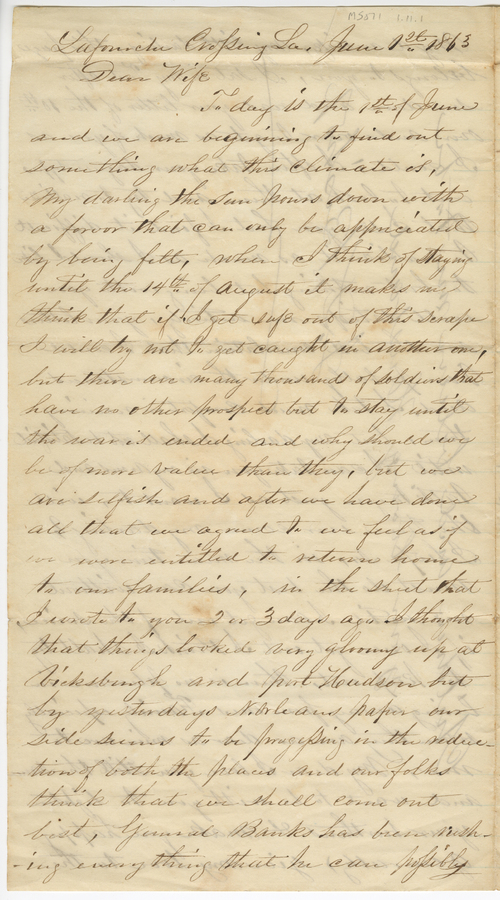 MS071 1.11.1
Lafourche Crossing La. June 1st 1863
Dear Wife
To day is the 1st of June
and we are beginning to find out
something what this climate is,
My darling the sun pours down with
a forvor that can only be appriciated
by being felt, when I think of staying
until the 14th of august it makes me
think that if I get safe out of this scrape
I will try not to get caught in another one,
but there are many thousands of soldiers that
have no other prospect but to stay until
the war is ended and why should we
be of more value than they, but we
are selfish and after we have done
all that we agreed to we feel as if
we were entitled to return home
to our families, in the sheet that
I wrote to you 2 or 3 days ago I thought
that things looked very gloomy up at
Vicksburgh and port Hudson but
by yesterdays N. Orleans paper our
side seems to be progressing in the reduc-
-tion of both the places and our folks
think that we shall come out
best, General Banks has been rush-
-ing everything that he can possibly